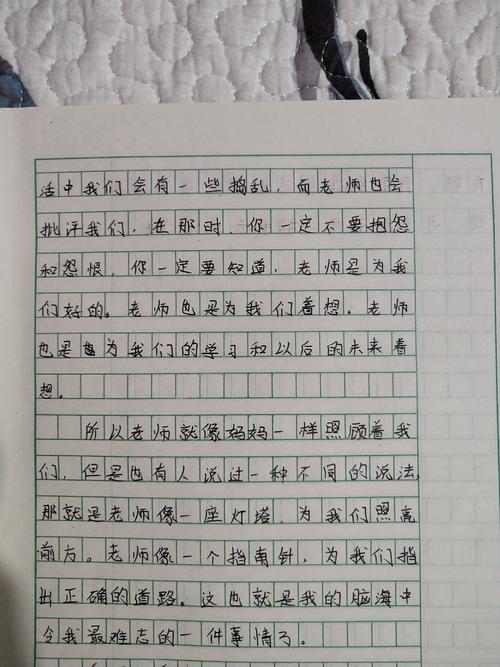 活中我们会有一些捣乱，而老师也会
批评我们，在那时，你一定不要抱怨
和怨恨，你一定要知道，老师是为我
们好的。老师也是为我们着想。老师
也是也为我们的学习和以后的未来着
想。
所以老师就像妈妈一样照顾着我
们，但是也有人说过一种不同的说法，
那就是老师像一座灯塔，为我们照亮
前方。老师像一个指南针，为我们指
出正确的道路。这也就是我的脑海中
令我最难忘的一件事情了。